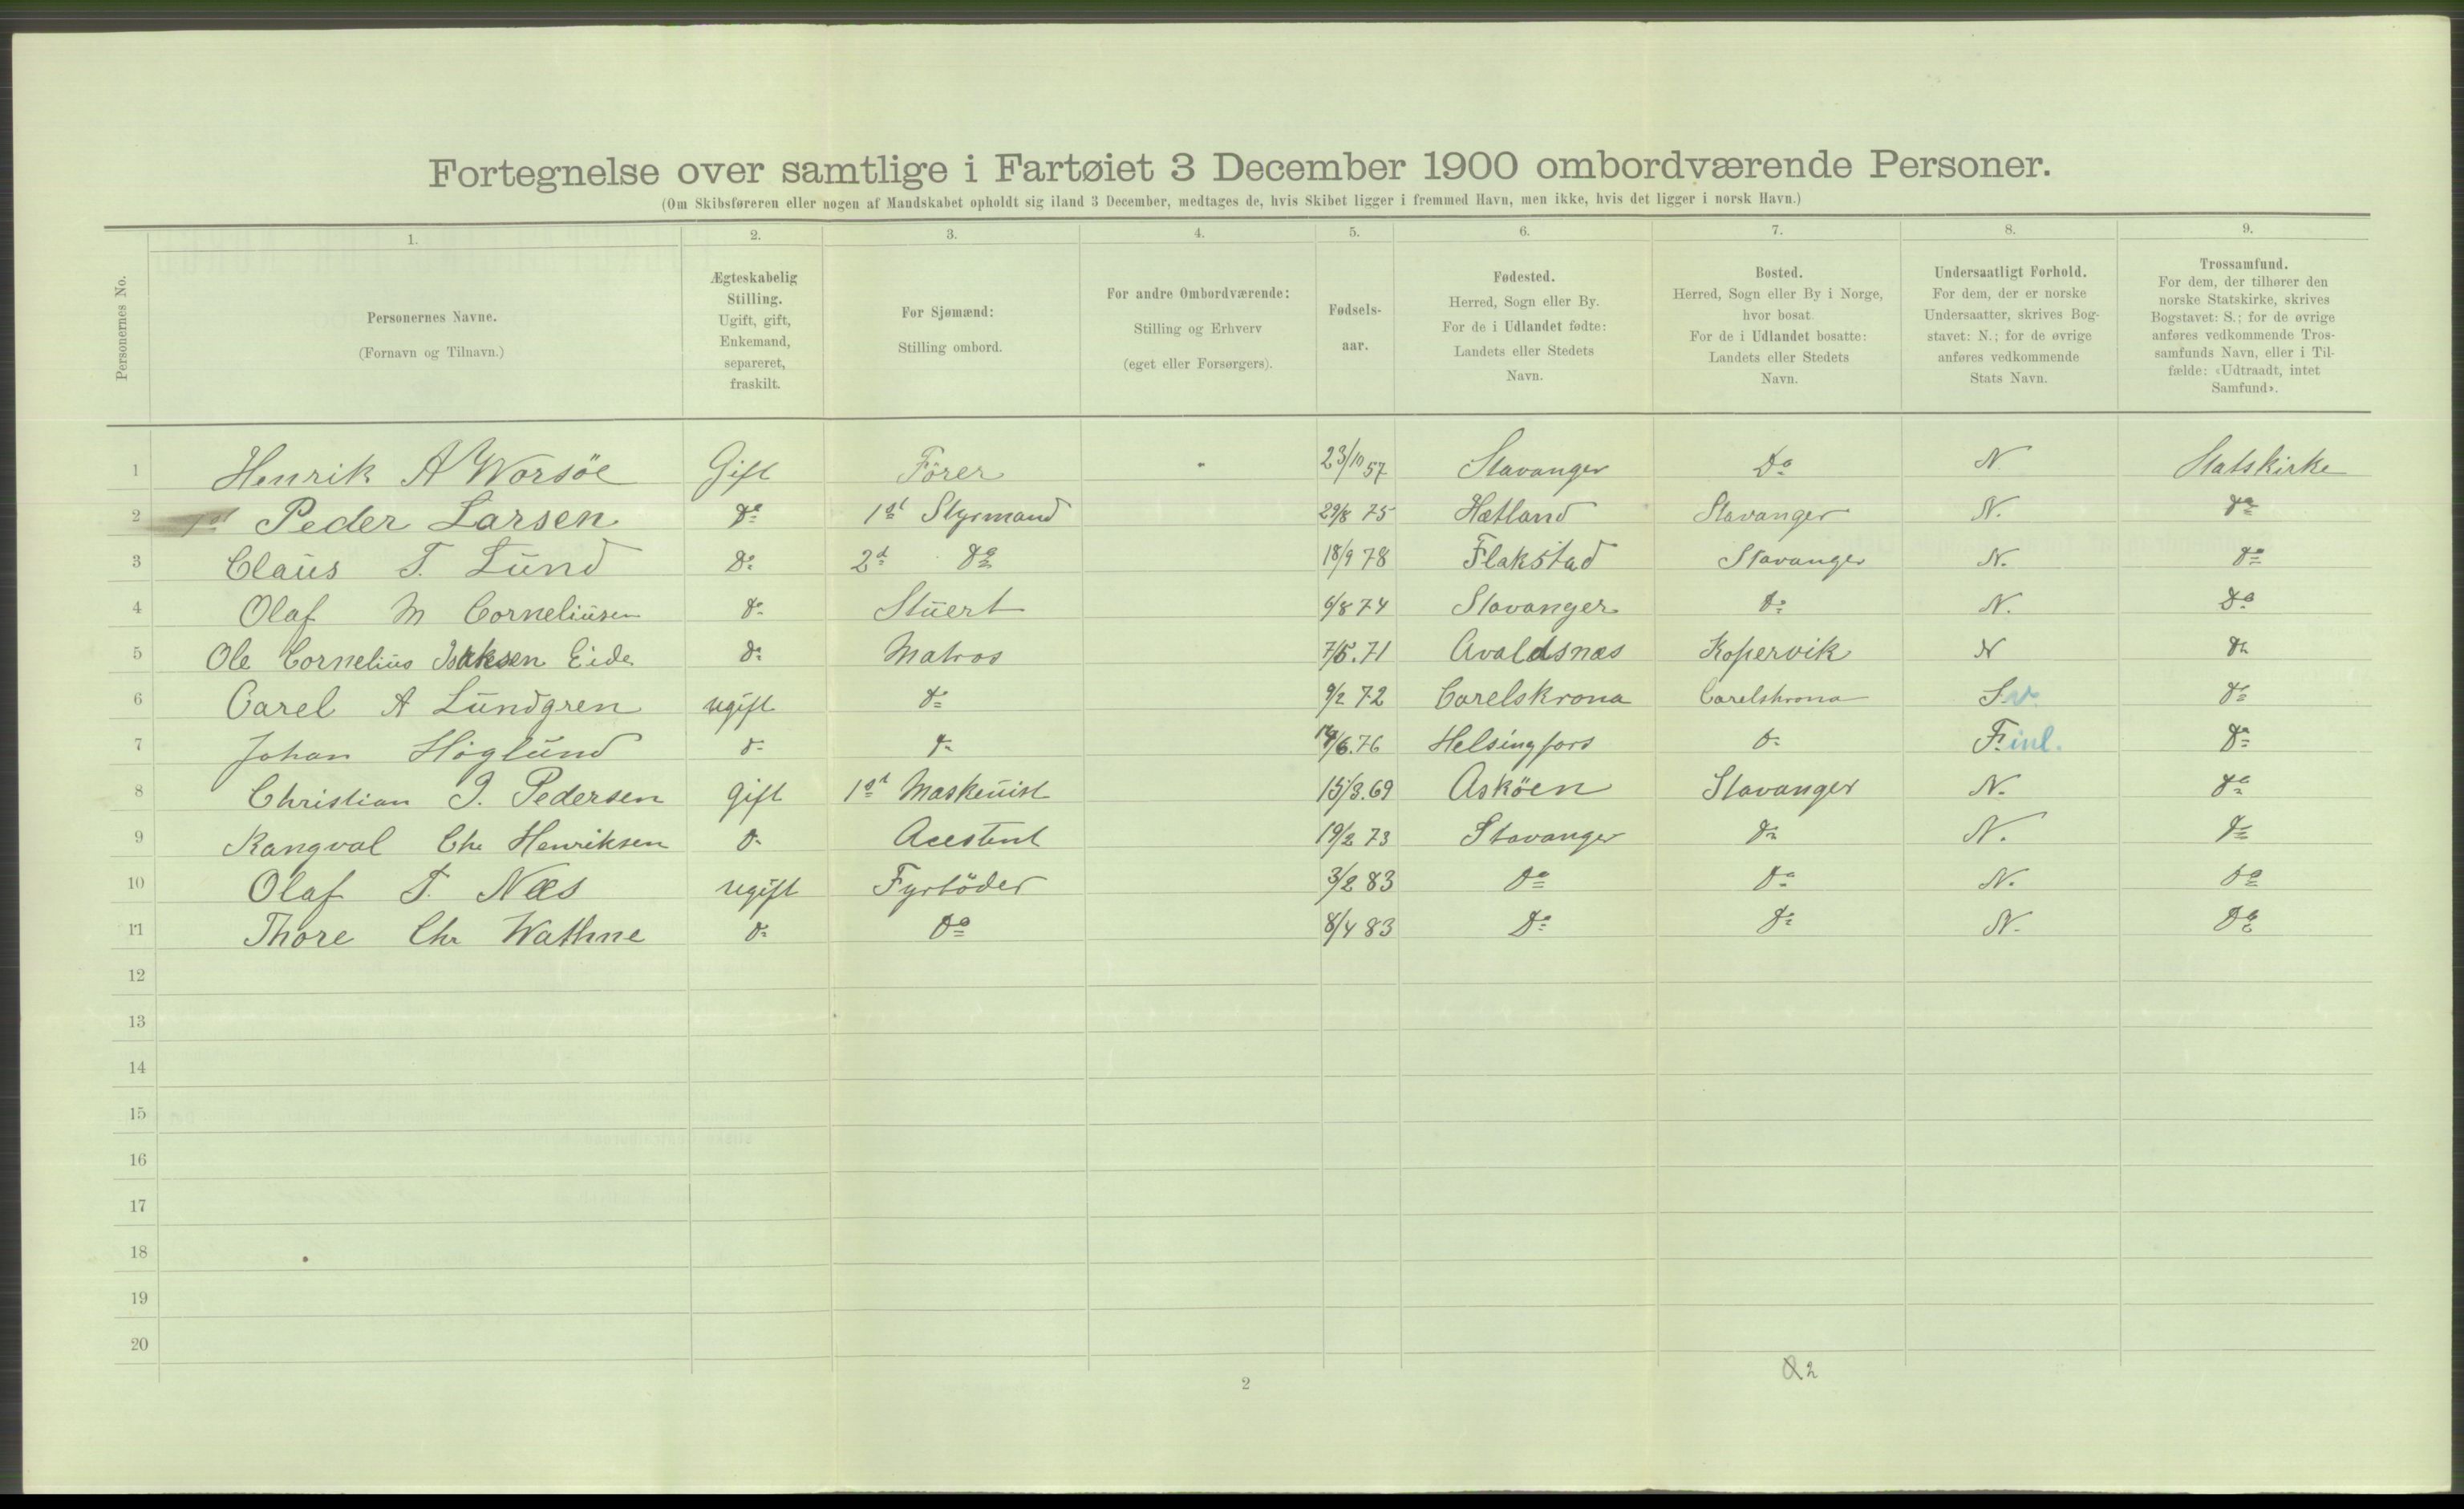 Fortegnelse over samtlige i Fartøiet 3 December 1900 ombordværende Personer.
(Om Skibsføreren eller nogen af Mandskabet opholdt sig iland 3 December, medtages de, hvis Skibet ligger i fremmed Havn, men ikke, hvis det ligger i norsk Havn.)
Personernes No.
1. 2. 3. 4. 5. 6. 7. 8. 9.
Personernes Navne.
(Fornavn og Tilnavn.)
Ægteskabelig
Stilling.
Ugift, gift,
Enkemand,
separeret,
fraskilt.
For Sjømænd:
Stilling ombord.
For andre Ombordværende:
Stilling og Erhverv
(eget eller Forsørgers).
Fødsels-
aar.
Fødested.
Herred, Sogn eller By.
For de i Udlandet fødte:
Landets eller Stedets
Navn.
Bosted.
Herred, Sogn eller By i Norge,
hvor bosat.
For de i Udlandet bosatte:
Landets eller Stedets
Navn.
Undersaatligt Forhold.
For dem, der er norske
Undersaatter, skrives Bog-
stavet: N.; for de øvrige
anføres vedkommende
Stats Navn.
Trossamfund.
For dem, der tilhører den
norske Statskirke, skrives
Bogstavet: S.; for de øvrige
anføres vedkommende Tros-
samfunds Navn, eller i Til-
fælde: «Udtraadt, intet
Samfund».
1 Henrik A Worsöe Gift Förer 23/10 57 Stavanger Do N Statskirke
2 Peder Larsen Do 1st Styrmand 29/8 75 Hetland Stavanger N. Do
3 Claus T. Lund Do 2d Do 18/9 78 Flakstad Stavanger N. Do
4 Olaf M Corneliusen Do Stuert 6/8 74 Stavanger Do N. Do
5 Ole Cornelius Isaksen Eide Do Matros 7/5.71 Avaldsnæs Kopervik N Do
6 Carel A Lundgren ugift Do 9/2 72 Carelskrona Carelskrona Sv. Do
7 Johan Höglund Do Do 14/6.76 Helsingfors Do Finl. Do
8 Christian I. Pedersen gift 1st Maskenist 15/3.69 Asköen Stavanger N. Do
9 Rangval Chr Henriksen Do Acestent 19/2 73 Stavanger Do N. Do
10 Olaf T. Næs ugift Fyrböder 3/2 83 Do Do N. Do
11 Thore Chr Wathne Do Do 8/4 83 Do Do N. Do
12
13
14
15
16
17
18
19
20
2